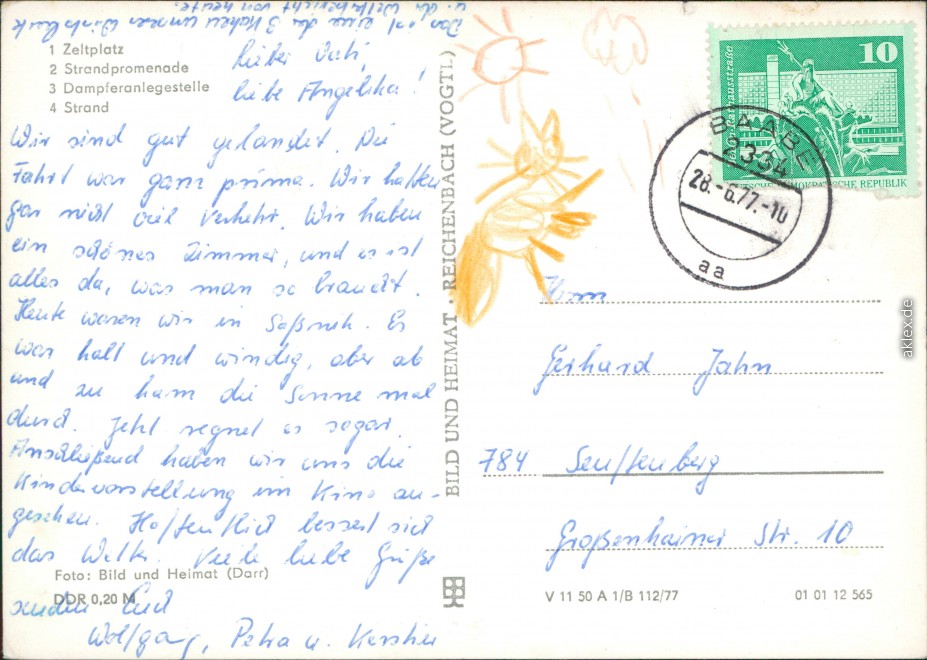 Das ist eine der 3 Katzen unserer Wirtsleute
u. der Wetterbericht von heute.
1 Zeltplatz
2 Strandpromenade
3 Dampferanlegestelle
4 Strand
Lieber Vati,
liebe Angelika!
Wir sind gut gelandet. Die
Fahrt war ganz prima. Wir hatten
gar nicht viel Verkehr. Wir haben
ein schönes Zimmer, und es ist
alles da, was man so braucht.
Heute waren wir in Saßnitz. Es
war kalt und windig, aber ab
und zu kam die Sonne mal
durch. Jetzt regnet es sogar.
Anschließend haben wir uns die
Kindervorstellung im Kino an-
gesehen. Hoffentlich bessert sich
das Wetter. Viele liebe Grüße
Foto: Bild und Heimat (Darr)
DDR 0,20 M
senden Euch
Wolfgang, Petra u. Kerstin
BILD UND HEIMAT · REICHENBACH (VOGTL.)
10
Rathausstraße
DEUTSCHE DEMOKRATISCHE REPUBLIK
BAABE
2334
28.-6.77.-10
aa
Herrn
Gerhard Jahn
784 Senftenberg
Großenhainer Str. 10
V 11 50 A 1/B 112/77
01 01 12 565
aklex.de